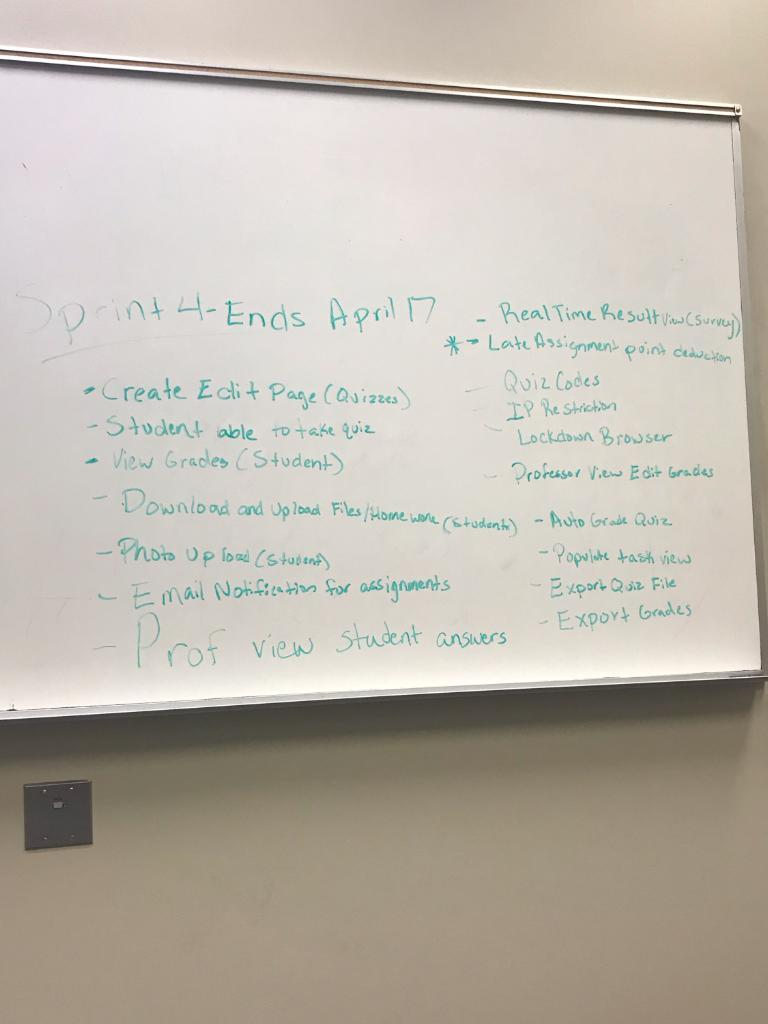 Sprint 4 - Ends April 17
- Create Edit Page (Quizzes)
- Student able to take quiz
- View Grades (Student)
- Download and Upload Files/Homework (Students)
- Photo Upload (Student)
- Email Notification for assignments
- Prof view student answers
- Real Time Result View (Survey)
* - Late Assignment point deduction
- Quiz Codes
IP Restriction
- Lockdown Browser
- Professor View Edit Grades
- Auto Grade Quiz
- Populate task view
- Export Quiz File
- Export Grades